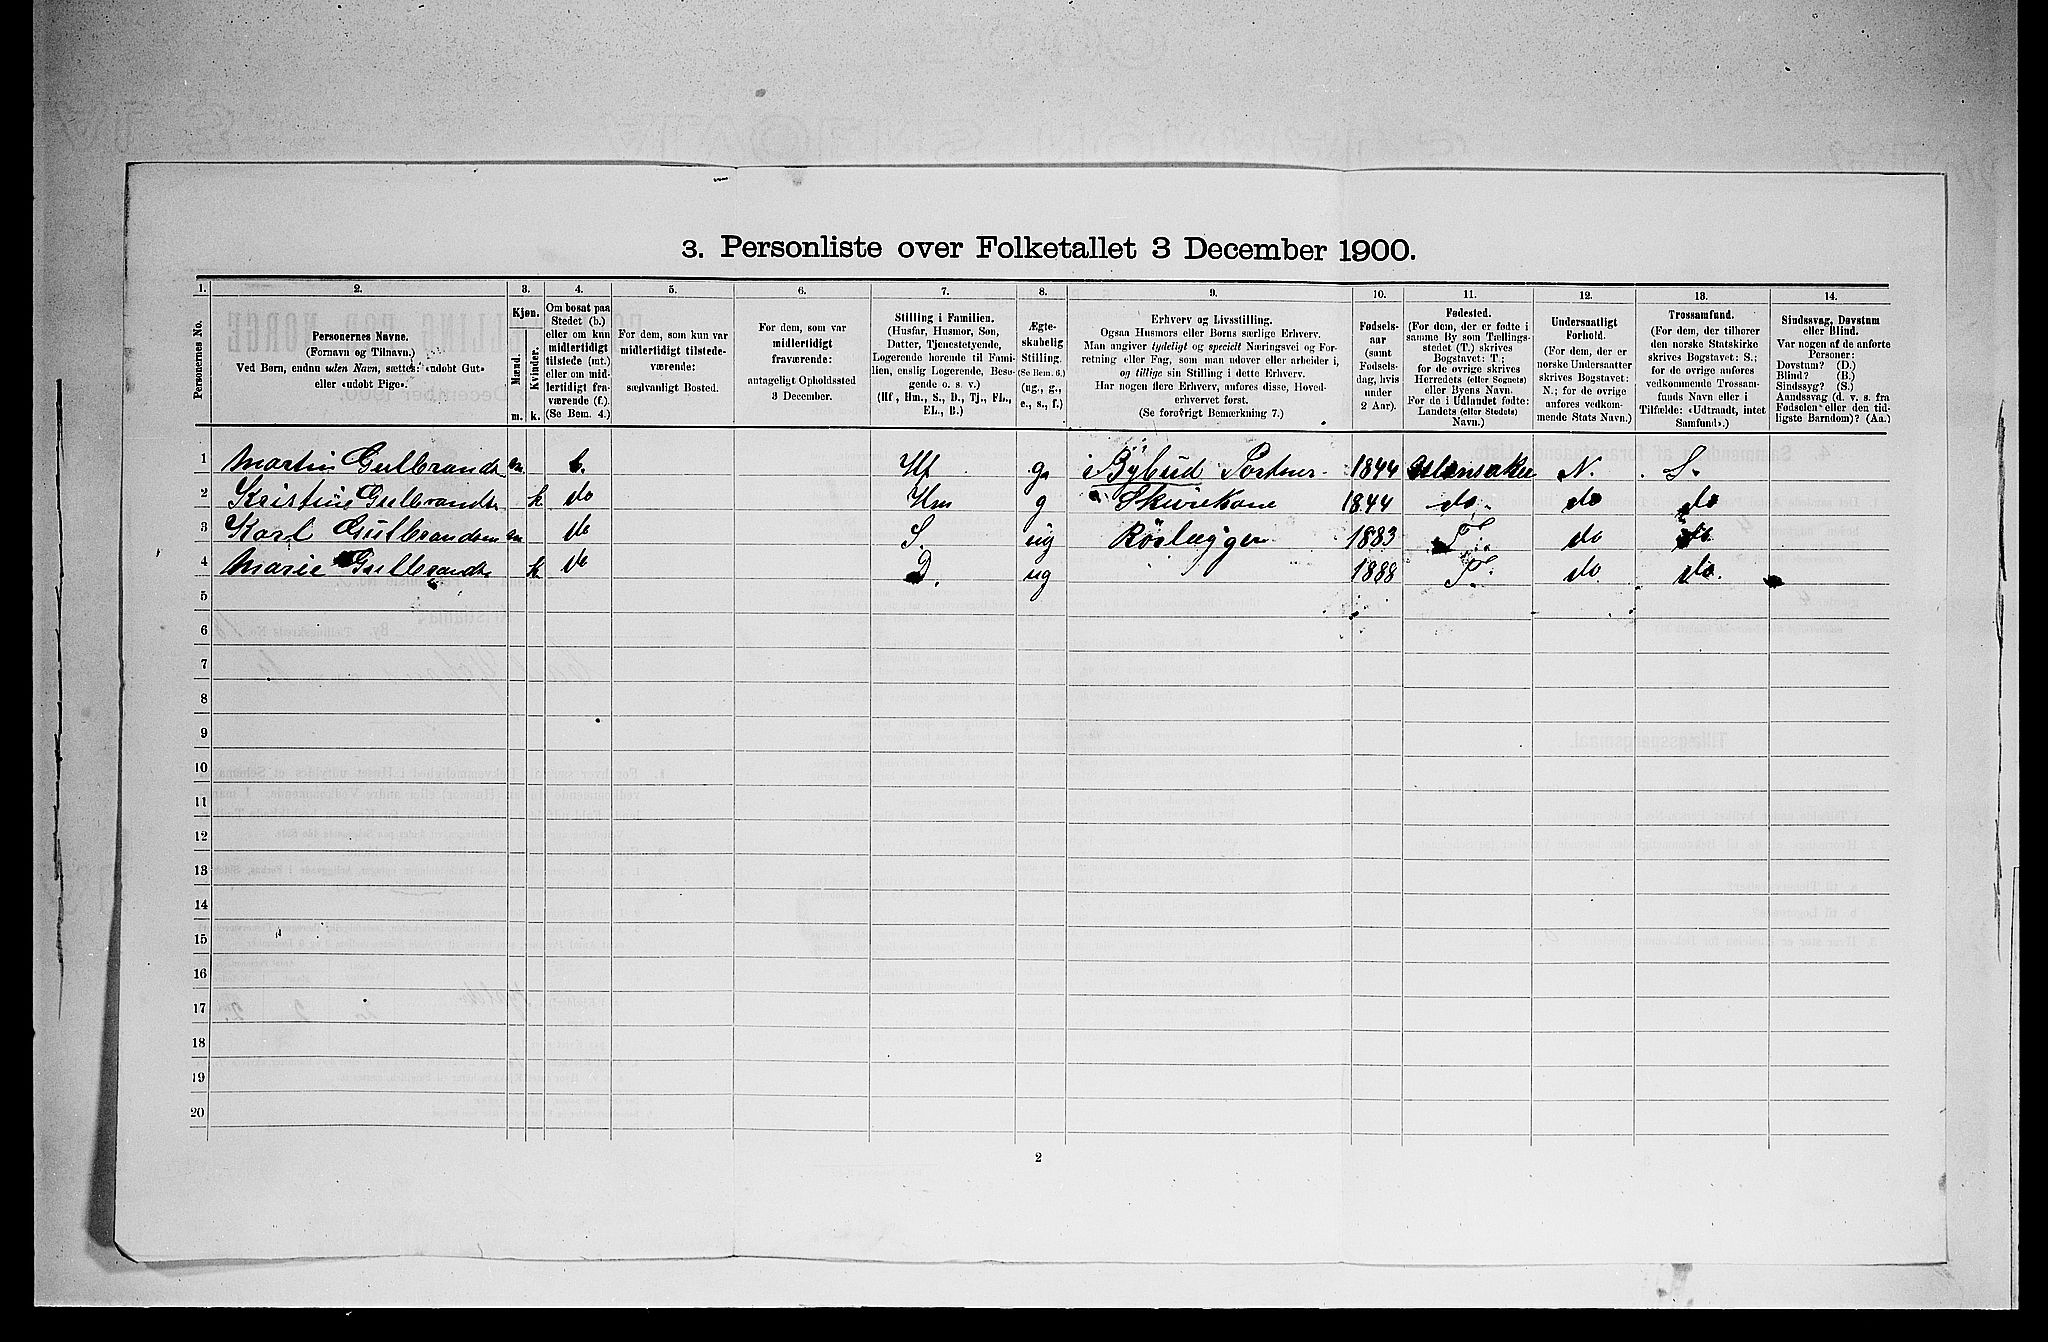 3. Personliste over Folketallet 3 December 1900.
1. 2. 3. 4. 5. 6. 7. 8. 9. 10. 11. 12. 13. 14.
Personernes No.
Personernes Navne.
(Fornavn og Tilnavn.)
Ved Børn, endnu uden Navn, sættes: «udøbt Gut»
eller «udøbt Pige».
Kjøn.
Mænd.
Kvinder.
m. k.
Om bosat paa
Stedet (b.)
eller om kun
midlertidigt
tilstede (mt.)
eller om mid-
lertidigt fra-
værende (f.).
(Se Bem. 4.)
For dem, som kun var
midlertidigt tilstede-
værende:
sædvanligt Bosted.
For dem, som var
midlertidigt
fraværende:
antageligt Opholdssted
3 December.
Stilling i Familien.
(Husfar, Husmor, Søn,
Datter, Tjenestetyende,
Logerende hørende til Fami-
lien, enslig Logerende, Besø-
gende o. s. v.)
(Hf., Hm., S., D., Tj., FL.,
EL., B.)
Ægte-
skabelig
Stilling.
(Se Bem. 6.)
(ug., g.,
e., s., f.)
Erhverv og Livsstilling.
Ogsaa Husmors eller Børns særlige Erhverv.
Man angiver tydeligt og specielt Næringsvei og For-
retning eller Fag, som man udøver eller arbeider i,
og tillige sin Stilling i dette Erhverv.
Har nogen flere Erhverv, anføres disse, Hoved-
erhvervet først.
(Se forøvrigt Bemærkning 7.)
Fødsels-
aar
(samt
Fødsels-
dag, hvis
under
2 Aar).
Fødested.
(For dem, der er fødte i
samme By som Tællings-
stedet (T.) skrives
Bogstavet: T.;
for de øvrige skrives
Herredets (eller Sognets)
eller Byens Navn.
For de i Udlandet fødte:
Landets (eller Stedets)
Navn.)
Undersaatligt
Forhold.
(For dem, der er
norske Undersaatter
skrives Bogstavet:
N.; for de øvrige
anføres vedkom-
mende Stats Navn.)
Trossamfund.
(For dem, der tilhører
den norske Statskirke
skrives Bogstavet: S.;
for de øvrige anføres
vedkommende Trossam-
funds Navn eller i
Tilfælde: «Udtraadt, intet
Samfund».)
Sindssvag, Døvstum
eller Blind.
Var nogen af de anførte
Personer:
Døvstum? (D.)
Blind? (B.)
Sindssyg? (S.)
Aandssvag (d. v. s. fra
Fødselen eller den tid-
ligste Barndom)? (Aa.)
1 Martin Gulbrands m b. Hf g. Bybud 1844 Ulensaker N. S.
2 Kristine Gulbrands k do Hm g Skurekone 1844 do. do do
3 Karl Gulbrandsen m do S. ug Rørlægger 1883 T. do do
4 Marie Gulbrands k do D. ug 1888 T. do do.
5
6
7
8
9
10
11
12
13
14
15
16
17
18
19
20
2